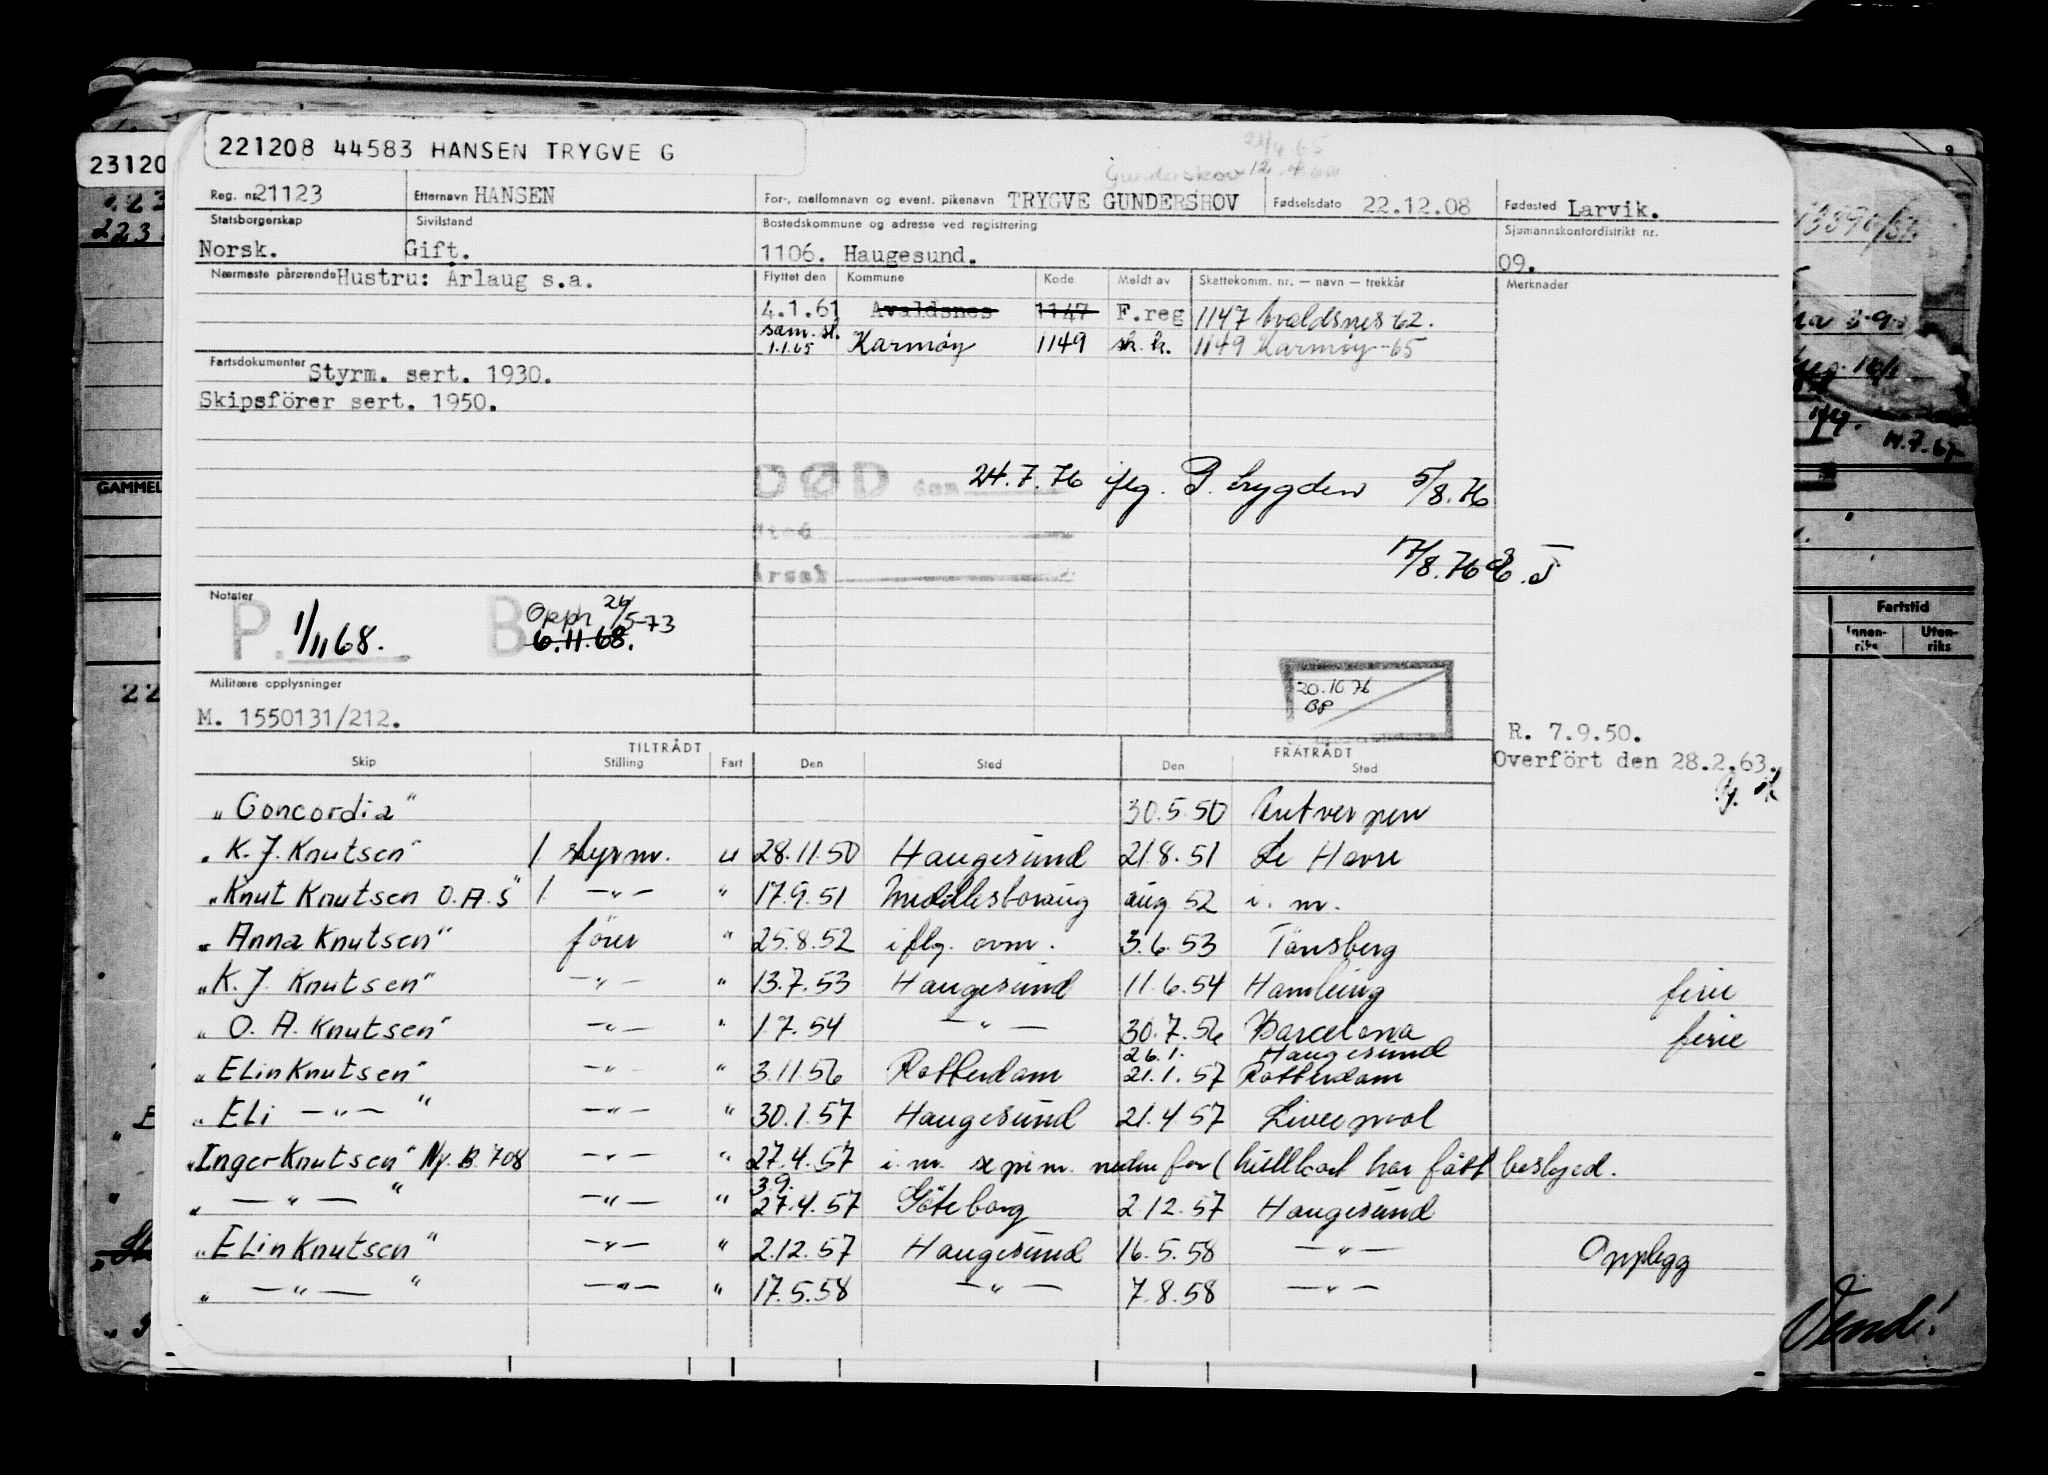 221208 44583 HANSEN TRYGVE G
23120
Reg. nr. 21123 Etternavn HANSEN For-, mellomnavn og event. pikenavn TRYGVE GUNDERSHOV Fødselsdato 22.12.08 Fødested Larvik.
Statsborgerskap Sivilstand Bostedskommune og adresse ved registrering Sjømannskontordistrikt nr.
Norsk. Gift. 1106. Haugesund. 09.
Nærmeste pårørende Hustru: Årlaug s.a. Flyttet den Kommune Kode Meldt av Skattekomm. nr. — navn — trekkår Merknader
4.1.61 Avaldsnes 1147 F.reg 1147 Avaldsnes 62.
sam. st.
1.1.65 Karmøy 1149 sk. k. 1149 Karmøy-65
Fartsdokumenter Styrm. sert. 1930.
Skipsförer sert. 1950.
DØD den 24.7.76 iflg. P. trygden 5/8.76
Sted
Årsak
17/8.76
Notater
P. 1/11 68. B Opph 26/5-73
6.11.68.
Militære opplysninger
M. 1550131/212.
20.10.76
BP
R. 7.9.50.
Overfört den 28.2.63.
TILTRÅDT FRATRÅDT
Skip Stilling Fart Den Sted Den Sted
"Concordia" 30.5.50 Antverpen
"K.J. Knutsen" 1 styrm. u 28.11.50 Haugesund 21.8.51 Le Havre
"Knut Knutsen O.A.S" 1 —"— " 17.9.51 Middlesboroug aug 52 i. m.
"Anna Knutsen" förer " 25.8.52 iflg. ovm. 3.6.53 Tönsberg
"K.J. Knutsen" —"— " 13.7.53 Haugesund 11.6.54 Hamburg ferie
"O. A. Knutsen" —"— " 1 7.54 —"— 30.7.56 Barcelona ferie
26.1. Haugesund
"Elin Knutsen" —"— " 3.11.56 Rotterdam 21.1.57 Rotterdam
"Eli —"— " —"— " 30.1.57 Haugesund 21.4.57 Liverpool
"Inger Knutsen" Ny. B. 708 —"— " 27.4.57 i. m. nedenfor ( hullkort har fått beskjed.
3.9.
" —"— " —"— " 27.4.57 Göteborg 2.12.57 Haugesund
"Elin Knutsen" —"— " 2.12.57 Haugesund 16.5.58 —"— Opplegg
" —"— " —"— " 17.5.58 —"— 7.8.58 —"—
GAMMEL
Fartstid
Innen-riks Uten-riks
14.7.67
Vend!